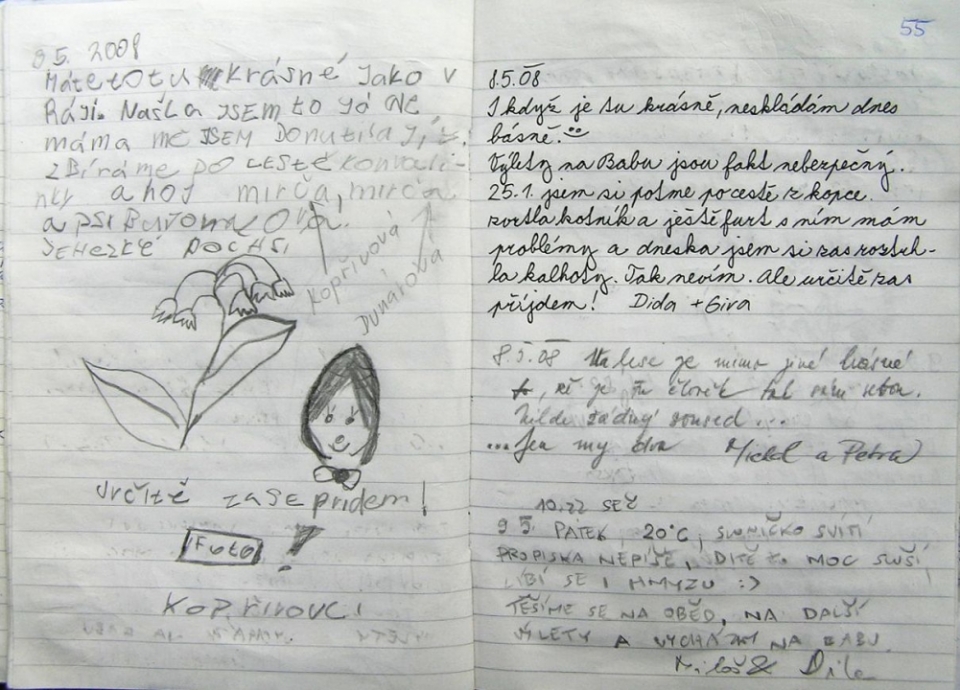 8 5. 2008
Máte totu krásné jako v
Ráji. Našla jsem to já ale
máma mě JSEM Donutila jí
zbíráme po cestě konvali-
nky ahoj mirča, mirča
a psi
JEHEZKÉ POČASI
kopřivová
Dunárová
určitě zase pridem!
Foto !
KOPŘIVOVCI
55
8.5.08
I když je tu krásně, neskládám dnes
básně.
Výlety na Babu jsou fakt nebezpečný.
25.1. jsem si potmě po cestě z kopce
zvrtla kotník a ještě furt s ním mám
problémy a dneska jsem si zas roztrh-
la kalhoty. Tak nevím. Ale určitě zas
příjdem! Dida + Gira
8.5.08 Na lese je mimo jiné krásné
, že je tu člověk tak sám sebou.
Nikde žádný soused ...
...Jen my dva Michal a Petra
10.22 SEČ
9 5. PÁTEK, 20°C, SLUNÍČKO SVÍTÍ
PROPISKA NEPÍŠE, DÍTĚ MOC SLUŠÍ,
LÍBÍ SE I HMYZU :)
TĚŠÍME SE NA OBĚD, NA DALŠÍ
VÝLETY A VYCHÁZKY NA BABU.
Miloš &